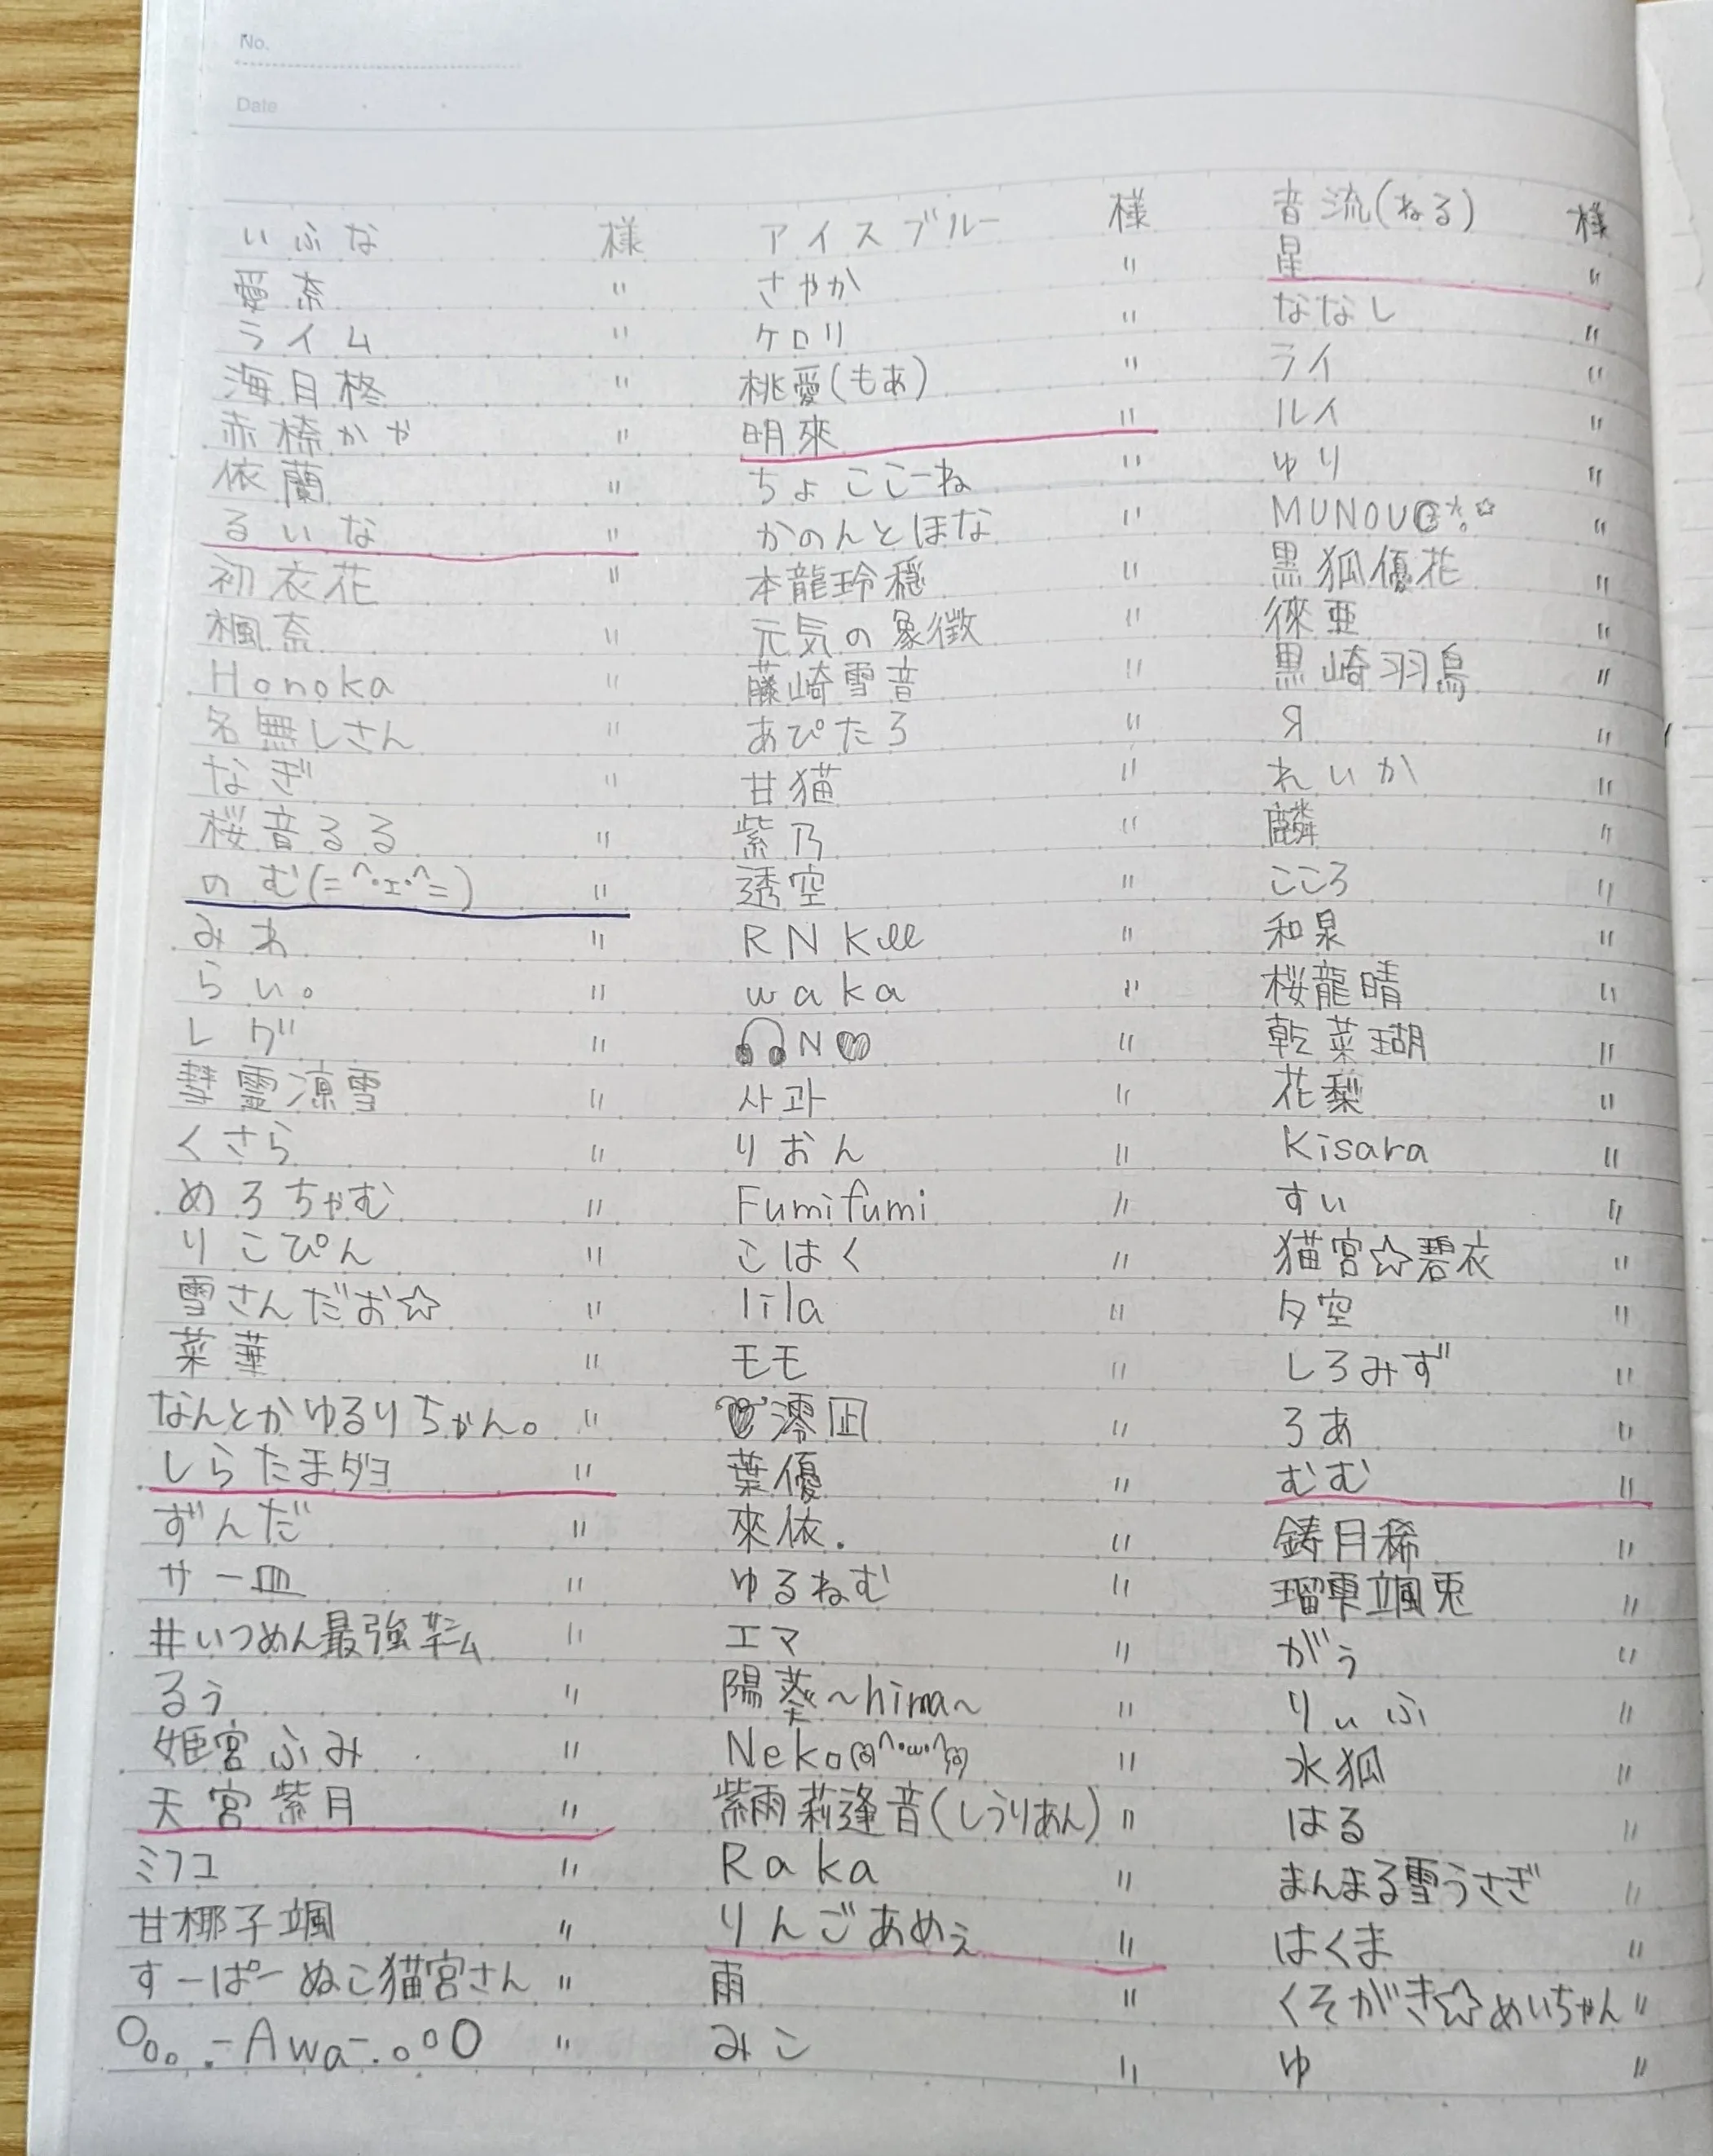 No.
Date
いふな 様
愛奈 〃
ライム 〃
海月柊 〃
赤桥かや 〃
依蘭 〃
るいな 〃
初衣花 〃
楓奈 〃
Honoka 〃
名無しさん 〃
なぎ 〃
桜音るる 〃
のむ(=^･ｪ･^=) 〃
みわ 〃
らい。 〃
レヴ 〃
彗靈凉雪 〃
くさら 〃
めろちゃむ 〃
りこぴん 〃
雪さんだお☆ 〃
菜華 〃
なんとかゆるりちゃん。 〃
しらたまダヨ 〃
ずんだ 〃
サー皿 〃
#いつめん最強 〃
るぅ 〃
姫宮ふみ 〃
天宮紫月 〃
ミフユ 〃
甘椰子颯 〃
すーぱーぬこ猫宮さん 〃
○o。.-Awa-.。oO 〃
アイスブルー 様
さやか 〃
ケロリ 〃
桃愛(もあ) 〃
明來 〃
ちょここーね 〃
かのんとほな 〃
本龍玲穏 〃
元気の象徴 〃
藤崎雪音 〃
あぴたろ 〃
甘猫 〃
紫乃 〃
透空 〃
RNKell 〃
waka 〃
🎧N♡ 〃
사과 〃
りおん 〃
Fumifumi 〃
こはく 〃
lila 〃
モモ 〃
澪凪 〃
葉優 〃
來依. 〃
ゆるねむ 〃
エマ 〃
陽葵～hima～ 〃
Neko 〃
紫雨莉逢音(しうりあん) 〃
Raka 〃
りんごあめぇ 〃
雨 〃
みこ 〃
音流(ねる) 様
星 〃
ななし 〃
ライ 〃
ルイ 〃
ゆり 〃
MUNOU 〃
黒狐優花 〃
徠亜 〃
黒崎羽鳥 〃
Я 〃
れいか 〃
麟 〃
こころ 〃
和泉 〃
桜龍晴 〃
乾菜瑚 〃
花梨 〃
Kisara 〃
すい 〃
猫宮☆碧衣 〃
夕空 〃
しろみず 〃
ろあ 〃
むむ 〃
鋳月稀 〃
瑠雫颯兎 〃
がぅ 〃
りぃふ 〃
水狐 〃
はる 〃
まんまる雪うさぎ 〃
はくま 〃
くそがき☆めいちゃん 〃
ゆ 〃